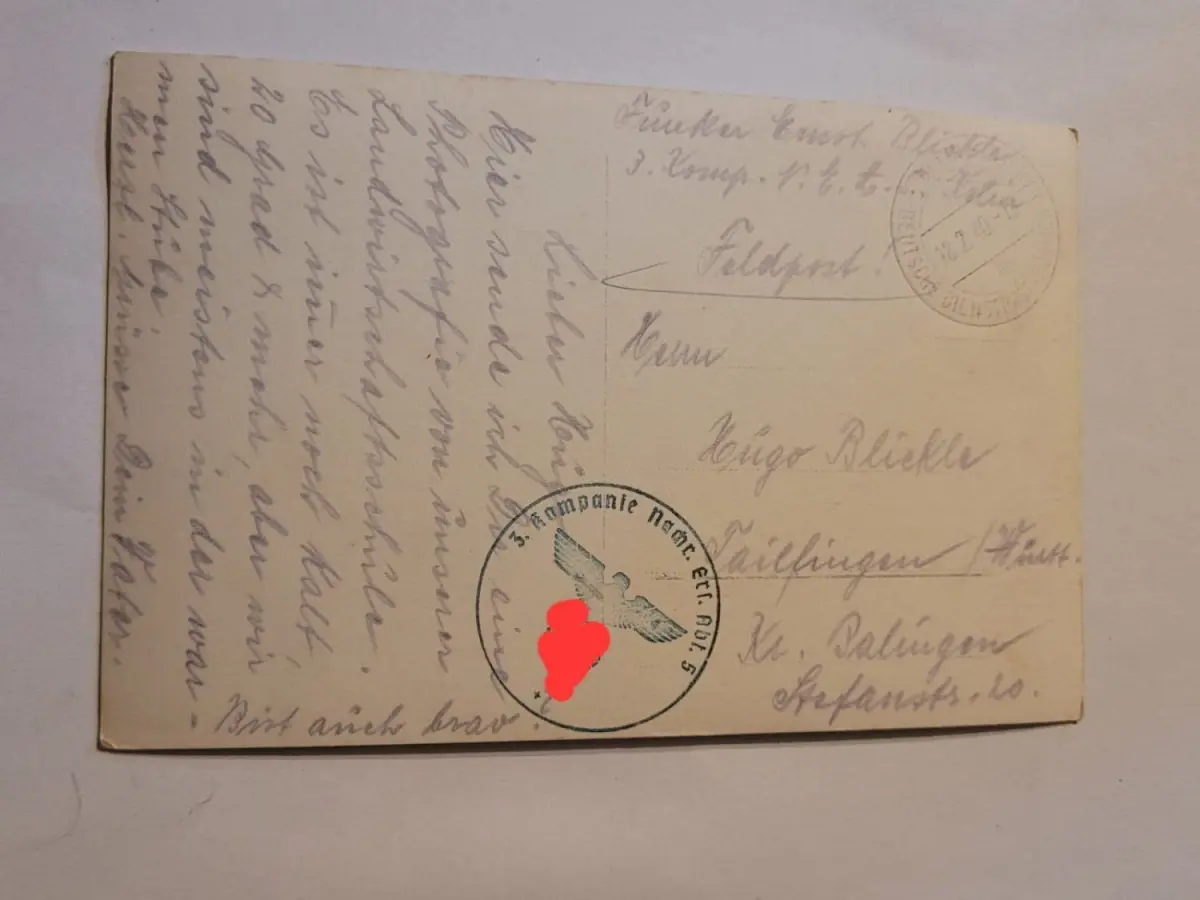 Funker Ernst Blickle
3. Komp. N. E. A.
Feldpost.
Herrn
Hugo Blickle
Tailfingen / Württ.
Kr. Balingen
Stefanstr. 20.
Lieber
Hier sende ich Dir eine
Photografie von unserer
Landwirtschaftsschule.
Es ist immer noch kalt,
20 Grad & mehr, aber wir
sind meistens in der war-
men Stube.
Herzl. Grüsse Dein Vater.
Bist auch brav?
3. Kompanie Nachr. Ers. Abt. 5
DEUTSCHE DIENSTPOST